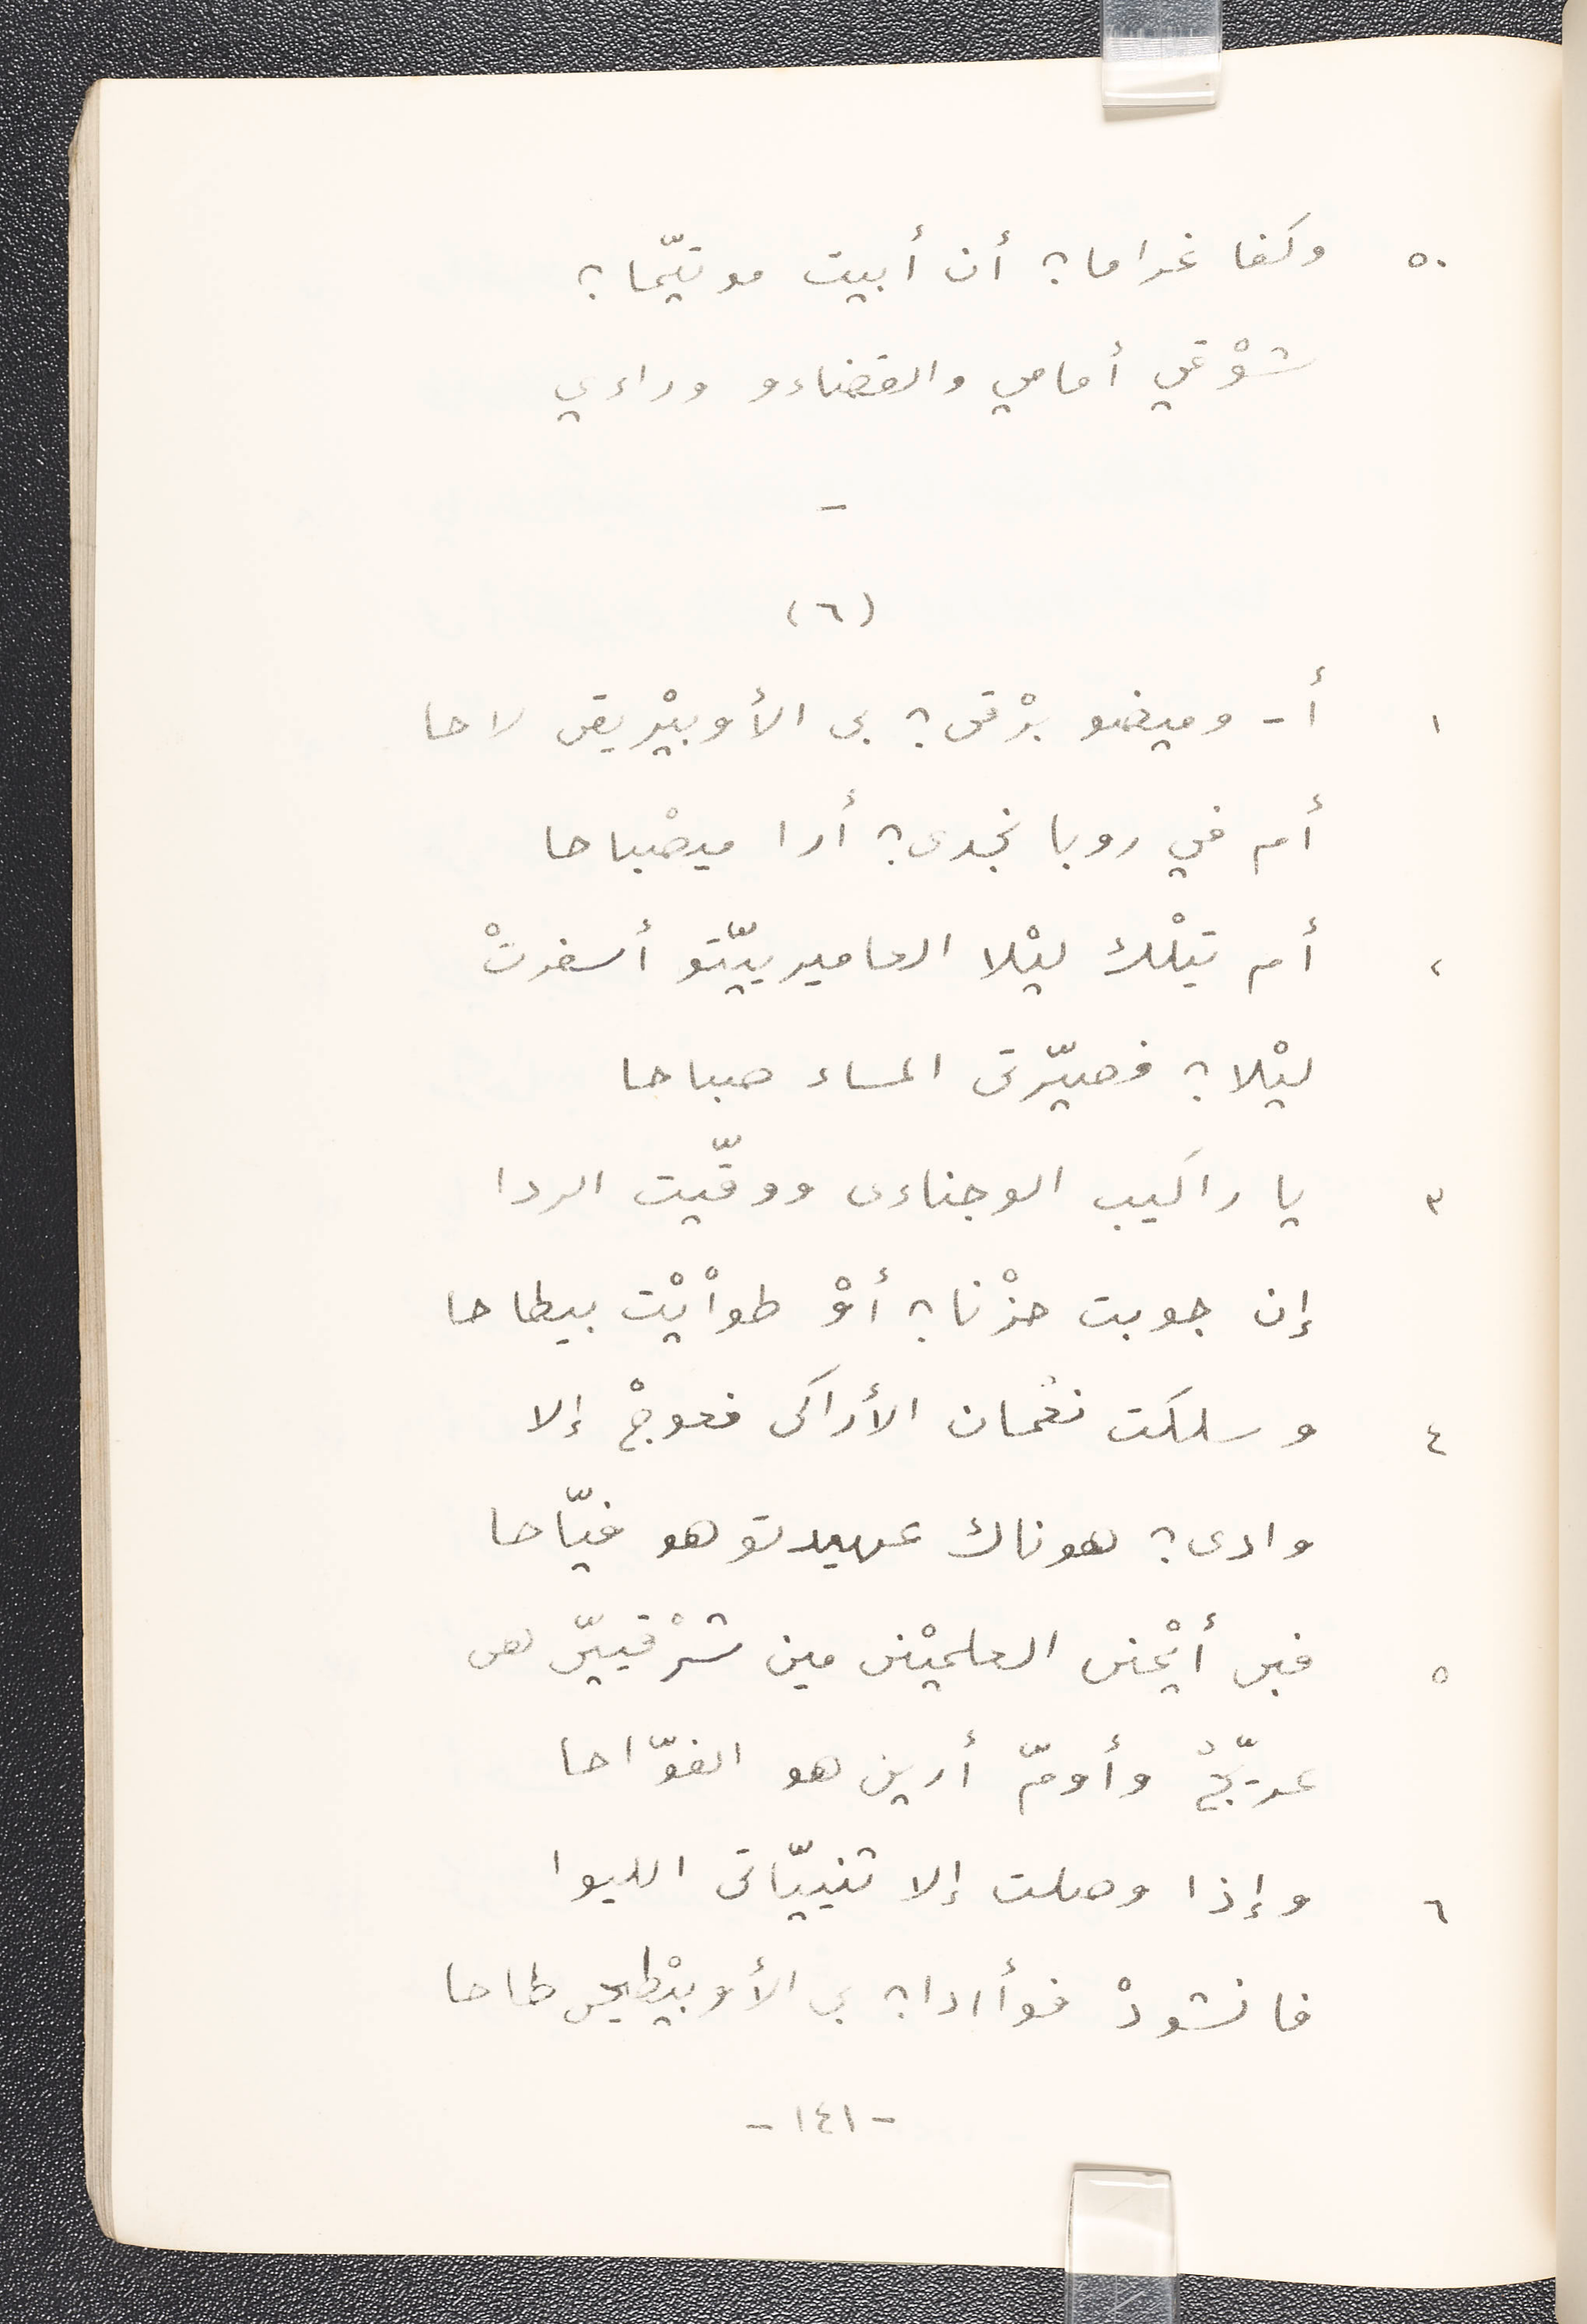 ٥٠ وكفا غراما؟ أن أبيت موتيّما؟
شوْقي أمامي والقضاءو وراءي
-
(٦)
١ أ- وميضو برْقى؟ بى الأوبيْريقى لاحا
أم في روبا نجدى؟ أرا ميصْباحا
٢ أم تيلْك ليْلا العاميرييّتو أسفرتْ
ليْلا؟ فصيّرتى المساء صباحا
٣ يا راكيب الوجناءى ووقّيت الردا
إن جوبت حزْنا؟ أوْ طواْيْت بيطاحا
٤ وسلكت نعْمان الأراكى فعوجْ إلا
وادى؟ هوناك عهيدتو هو فيّاحا
٥ فبى أيْمنى العلميْنى مين شرْقييّى هى
عرّيجْ وأومّ أرين هو الفوّاحا
٦ وإذا وصلت إلا تنييّاتى الليوا
فانشودْ فوأادا؟ بى الأوبيْطيحى طاحا
-١٤١-